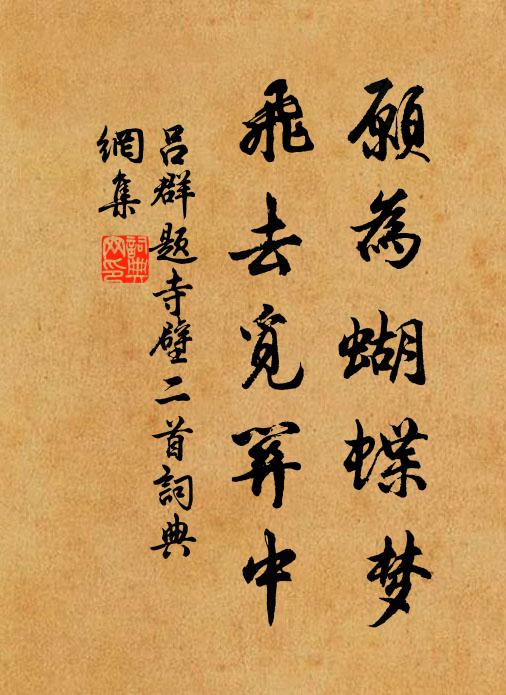 願為蝴蝶梦
飛去覓關中
呂群題寺壁二首詞典
網集
詞典
网印